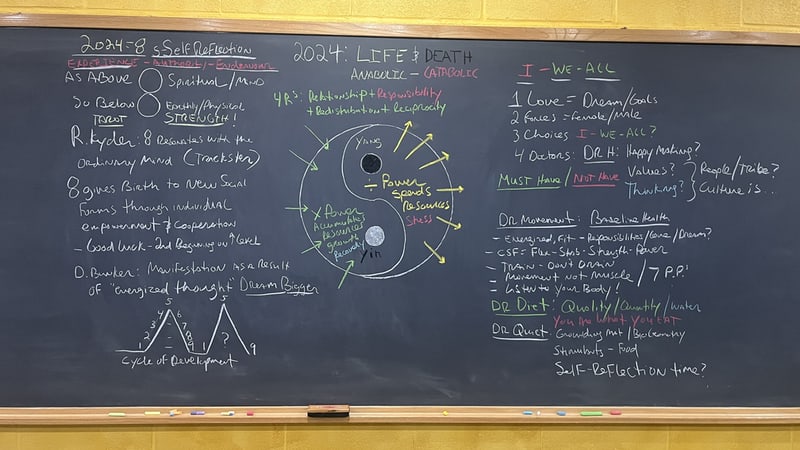 2024-8 s Self Reflection
EXPERIENCE - AUTHORITY - Endeavour
As Above
Spiritual/Mind
8
So Below
Earthly/Physical
TAROT
STRENGTH!
R. Kyder: 8 Resonates with the
Ordinary Mind (Trackster)
8 gives Birth to New Social
forms through individual
empowerment & Cooperation
- Good luck - 2nd Beginning on ↑ level
D. Bunker: Manifestation as a Result
of "energized thought" Dream Bigger
1 2 3 4 5 6 7 8 9
1 5 ? 9
Cycle of Development
2024: LIFE & DEATH
ANABOLIC - CATABOLIC
4 R's: Relationship + Responsibility
+ Redistribution + Reciprocity
Yang
÷ Power
Spends
Resources
Stress
X Power
Accumulates
Resources
growth
Recovery
Yin
I - WE - ALL
1 Love = Dream/Goals
2 Forces = Female/Male
3 Choices I-WE-ALL?
4 Doctors: DR H: Happy Making?
MUST HAVE / NOT HAVE
Values?
Thinking?
People/Tribe?
Culture is...
DR Movement: Baseline Health
- Energized, Fit - Responsibilities/Love/Dream?
- CSF = Flex - Stab - Strength - Power
- TRAIN - DON'T DRAIN
- Movement not Muscle
- Listen to Your Body!
7 P.P.!
DR Diet: Quality/Quantity/Water
You Are What You EAT
DR Quiet: Grounding Mat/BioGeometry
Stimulants - Food
SELF-REFLECTION time?